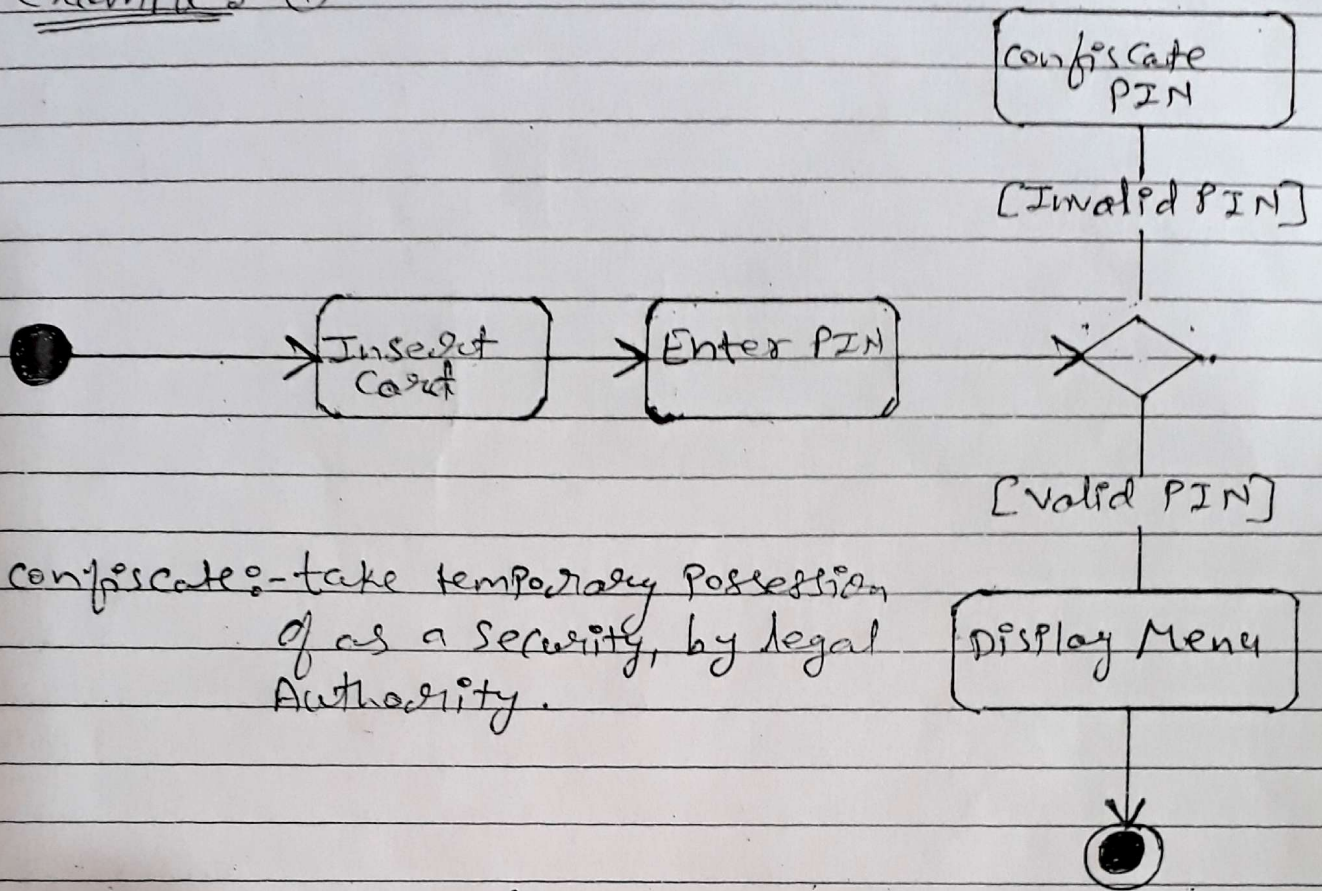 Confiscate
PIN
[Invalid PIN]
Insert
Card
Enter PIN
[Valid PIN]
Confiscate:- take temporary Possession
of as a security, by legal
Authority.
Display Menu